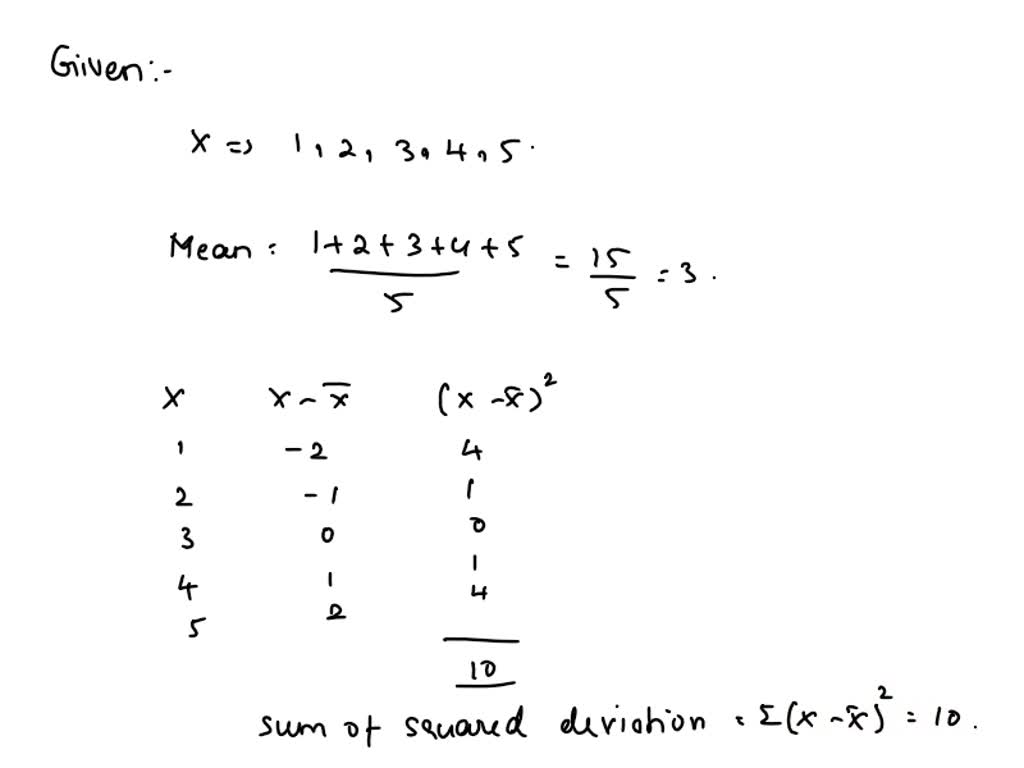 Given:-
X => 1, 2, 3, 4, 5.
Mean : 1+2+3+4+5 / 5 = 15/5 = 3.
X X - x̄ (x - x̄)²
1 -2 4
2 -1 1
3 0 0
4 1 1
5 2 4
10
sum of squared deviation = Σ(x - x̄)² = 10.